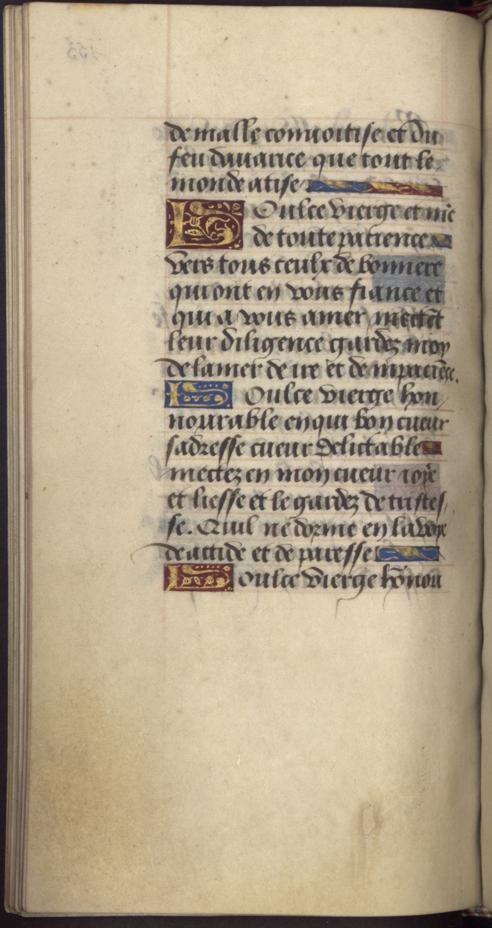 de malle convoitise et du
feu davarice que tout le
monde atise
Doulce vierge et me͞
de toute patience
vers tous ceulx de bonnere
qui ont en vous fiance et
qui a vous amer mectēt
leur diligence gardez moy
de lamer de ire et de inpaciēce.
Doulce vierge hon
nourable en qui bon cueur
sadresse cueur delictable
mectez en mon cueur ioye
et liesse et le gardez de tristes
se. Quil ne dorme en la voye
de accide et de paresse
Doulce vierge hōnou